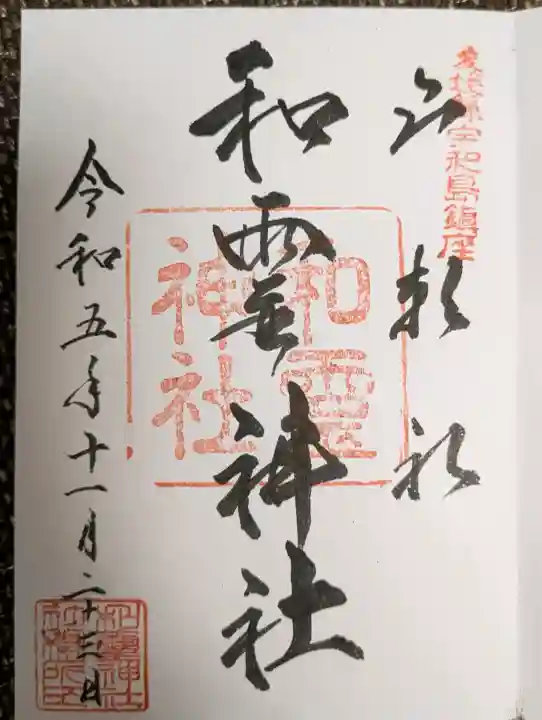 愛媛県宇和島鎮座
奉拝
和霊神社
和霊
神社
令和五年十一月二十三日